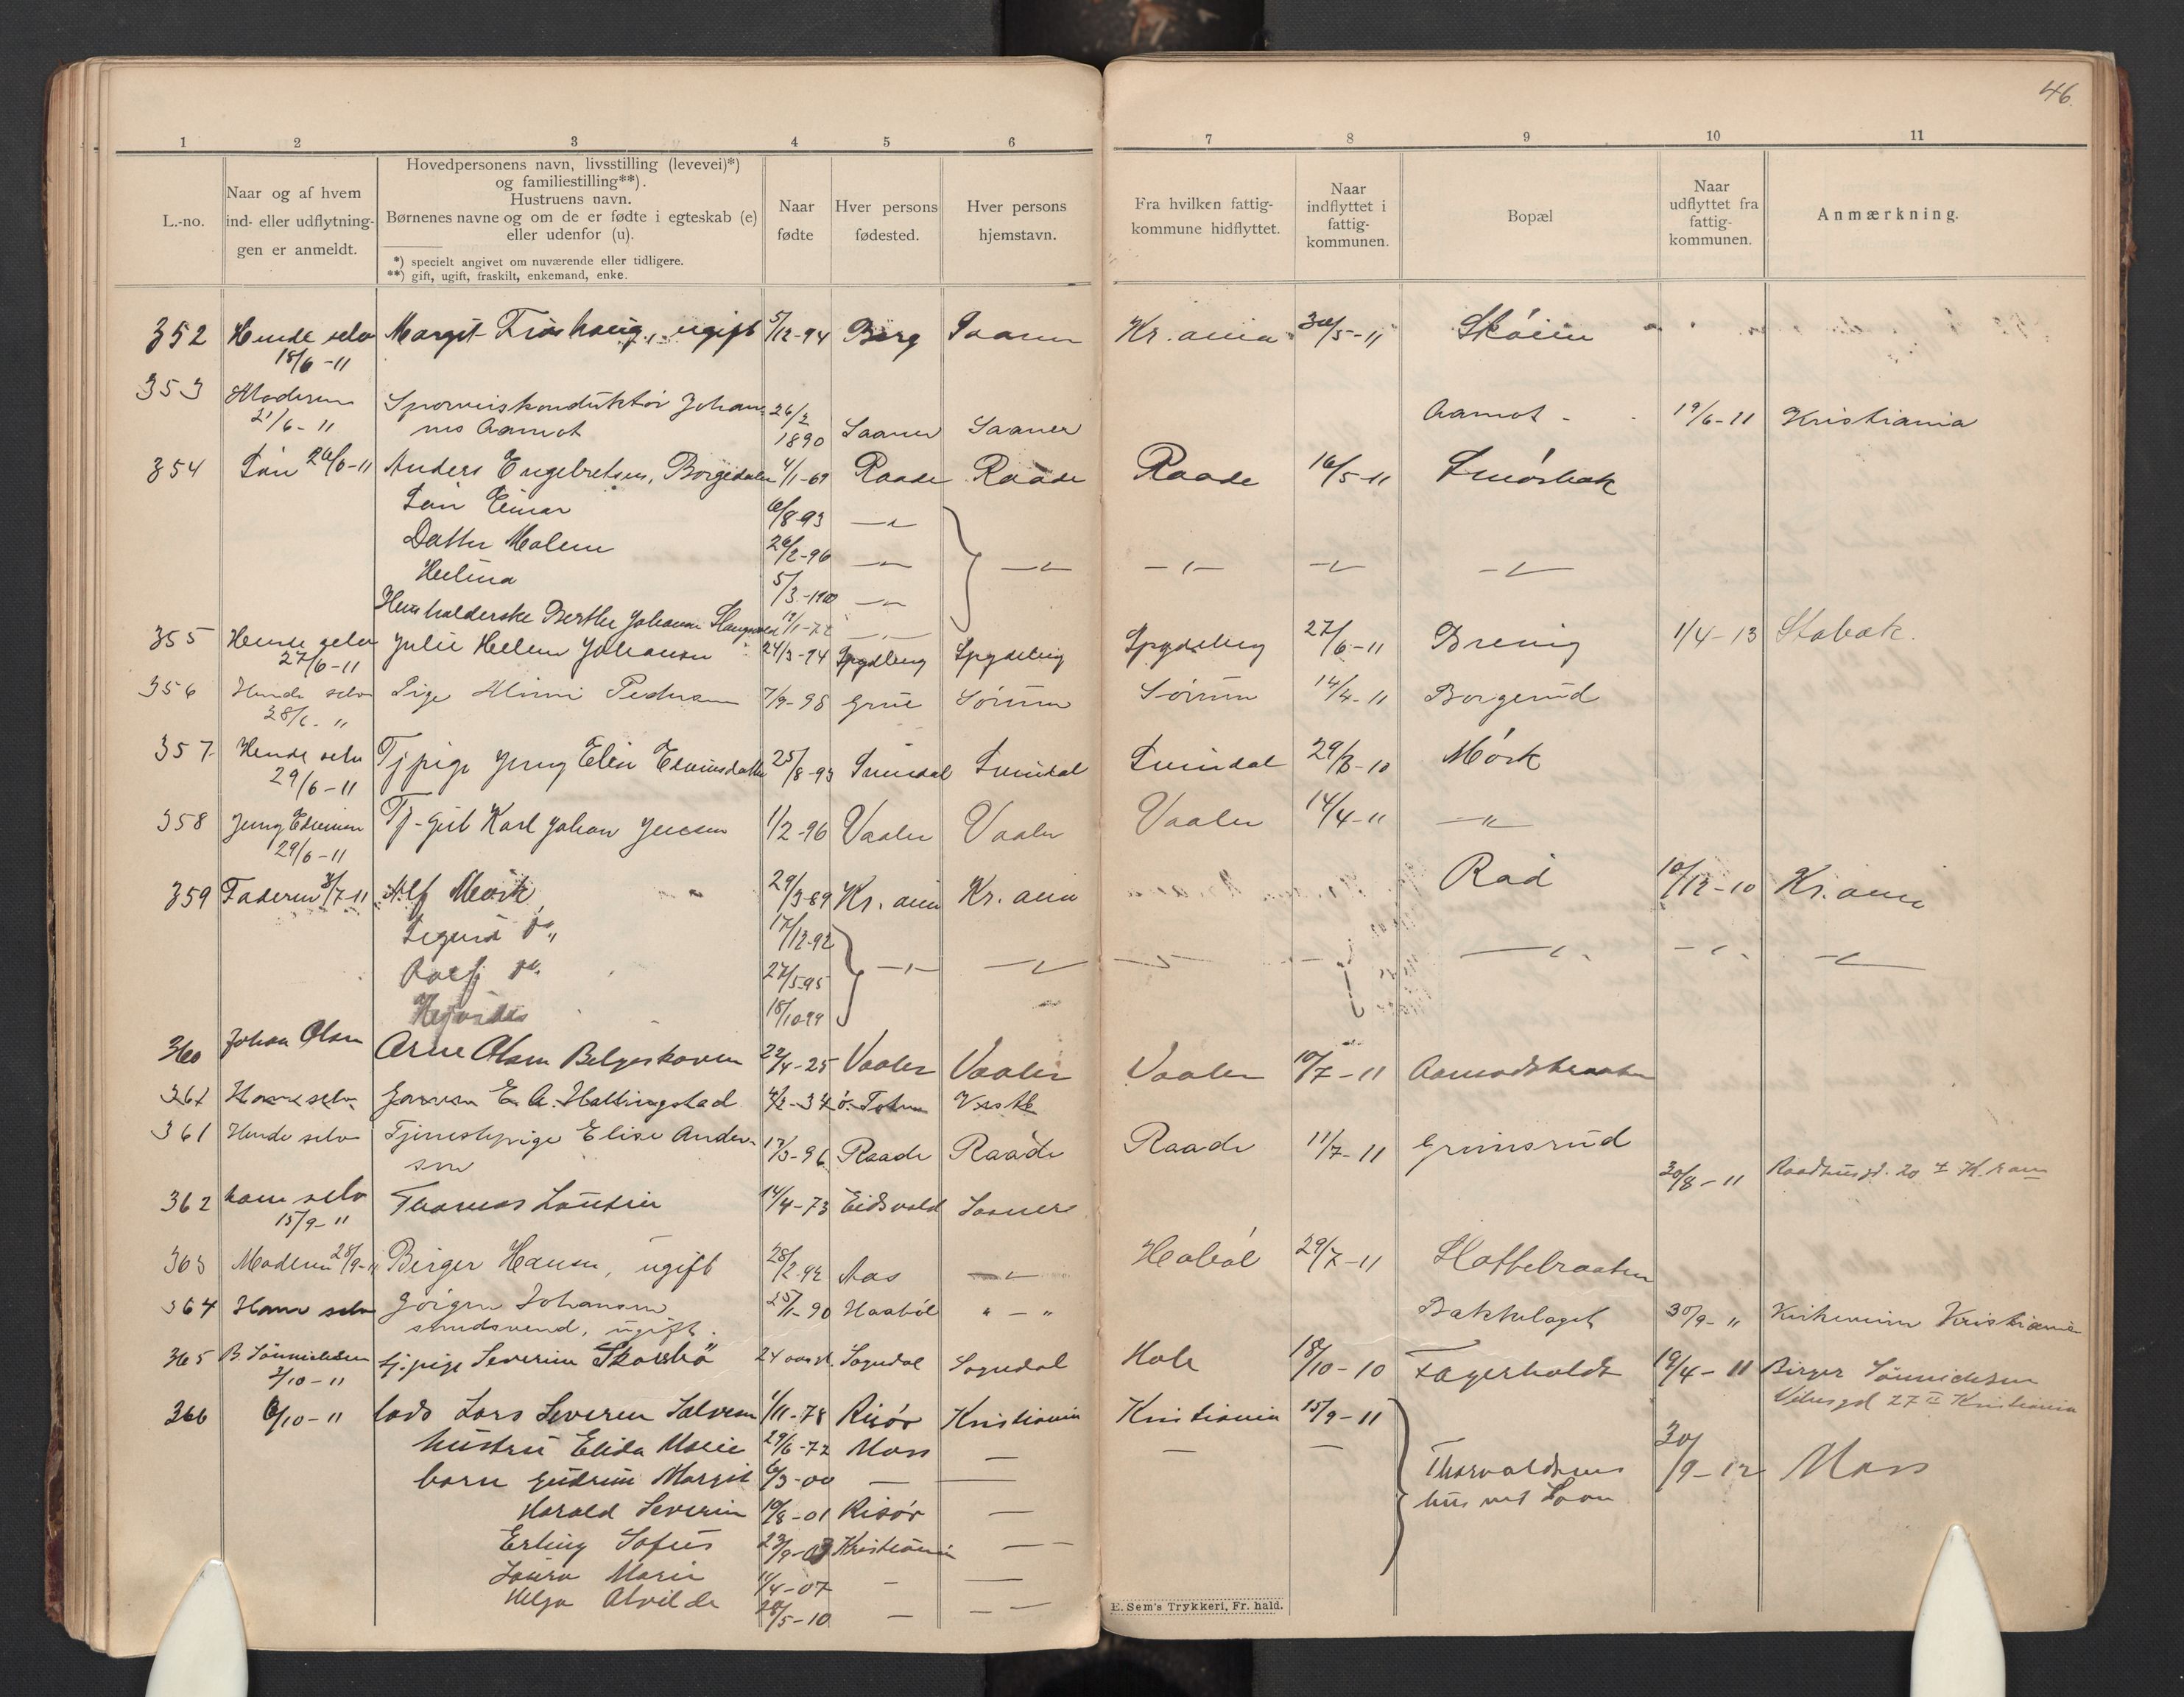 46.
1 2 3 4 5 6 7 8 9 10 11
L.-no.
Naar og af hvem
ind- eller udflytning-
gen er anmeldt.
Hovedpersonens navn, livsstilling (levevei)*)
og familiestilling**).
Hustruens navn.
Børnenes navne og om de er fødte i egteskab (e)
eller udenfor (u).
*) specielt angivet om nuværende eller tidligere.
**) gift, ugift, fraskilt, enkemand, enke.
Naar
fødte
Hver persons
fødested.
Hver persons
hjemstavn.
Fra hvilken fattig-
kommune hidflyttet.
Naar
indflyttet i
fattig-
kommunen.
Bopæl
Naar
udflyttet fra
fattig-
kommunen.
Anmærkning.
352 Hende selv Margit ugift 5/12-94 Berg Saaner Kr.ania 30/5-11 Skøien
18/6-11
353 Moderen Sporveiskonduktør Johan- 26/2 Aamot 19/6-11 Kristiania
21/6-11 nes Aamot 1890 Saaner Saaner
354 26/6-11 Anders Engebretsen, Borgedalen 4/1-69 Raade Raade Raade 16/5-11 Smørbæk
Søn Einar 6/8-93 —"—
Datter Malene 26/2-96 —"— —"— —"— —"— —"—
Helina 5/3-1900 —"—
Husholderske Berthe Johanne 12/1-72 —"—
355 Hende selv Julie Helene Johansen 24/3-94 Spydeberg Spydeberg Spydeberg 27/6-11 Brevig 1/4-13 Stabæk.
27/6-11
356 Hende selv Pige Pedersen 7/9-98 Grue Sørum Sørum 14/4-11 Borgerud
28/6-"
357 Hende selv Tjpige Jenny Elin Edvinsdatter 25/8-93 Svindal Svindal Svindal 29/8-10 Mørk
29/6-11
358 Jenny Edvinsen Tj-gut Karl Johan Jensen 1/2-96 Vaaler Vaaler Vaaler 14/4-11 —"—
29/6-11
359 Faderen 3/7-11 Alf Mørk, 29/3-89 Kr.ania Kr.ania Rød 10/12-10 Kr.ania
Sigurd do 17/12-92
Rolf do 27/5-95 —"— —"— —"— —"— —"— —"—
18/10-99
360 Johan Olsen Arne Olsen Belgeskoven 22/4-25 Vaaler Vaaler Vaaler 10/7-11 Aamodtbraaten
361 Ham selv E. A. Hallingstad 4/2-34 Ø. Toten
361 Hende selv Tjenestepige Elise Ander- 17/3-96 Raade Raade Raade 11/7-11 Grimsrud
sen 30/8-11 Raadhusgd. 20
362 ham selv Thomas 14/4-73 Eidsvold Saaner
15/9-"
363 Moderen 28/9-11 Birger Hansen, ugift 28/2-92 Aas —"— Hobøl 29/7-11
364 Ham selv Jørgen Johansen 25/1-90 Haabøl "—" Bakkelaget 30/9-" Kristiania
smedsvend, ugift.
365 B. Sønnichsen tj.pige Severine 24 aar gl. Sogndal Sogndal Hole 18/10-10 Fagerholdt 19/4-11 Birger Sønnichsen
2/10-11 27 II Kristiania
366 6/10-11 lods Lars Severin Salvesen 1/11-78 Risør Kristiania Kristiania 15/9-11
hustru Elida Marie 29/6-72 Moss — — —
børn Gudrun Margit 6/3-00 — — Thorvaldsens 30/9-12 Moss
Harald Severin 10/8-01 Risør — hus ved Soon
Erling Sofus 23/9-03 Kristiania —
Laura Marie 11/4-07 — —
Helga Alvilde 28/5-10 — —
E. Sem's Trykkeri, Fr. hald.